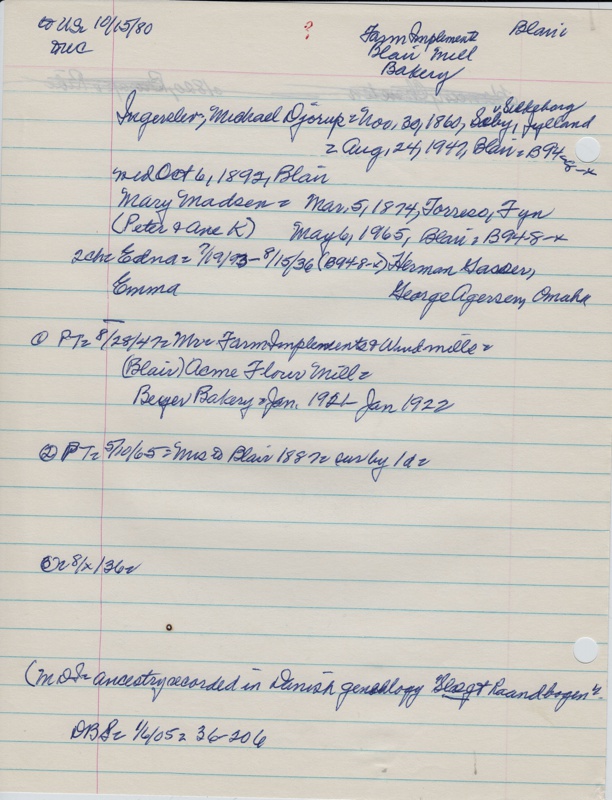 to US= 10/15/80 ? Farm Implements Blair
DWC Blair Mill
Bakery
Silkeborg
Ingerslev, Michael Djorup= Nov, 30, 1860, Seby, Jylland
= Aug, 24, 1947, Blair= B94-8-x
med Oct 6, 1892, Blair
Mary Madsen= Mar. 5, 1874, Torreso, Fyn
(Peter & Ane K) May 6, 1965, Blair= B948-x
2ch= Edna= 7/19/93- 8/15/36 (B948-x) Herman Gasser,
Emma George Agersen, Omaha
① PT= 8/28/47= Mr= Farm Implements & Windmills=
(Blair) Acme Flour Mill=
Beyer Bakery= Jan. 1921- Jan 1922
② PT= 5/10/65= Mrs to Blair 1887= sur by 1d=
8/x/36=
(MDI= ancestry recorded in Danish genealogy "Slægt Haandbogen"=
DBS= 1/6/05= 36-206